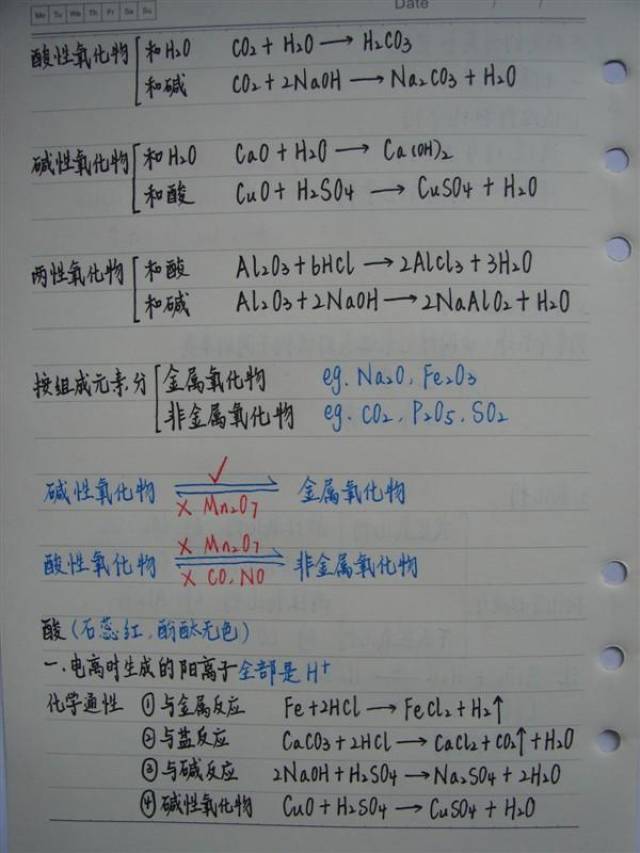 Mo Tu We Th Fr Sa Su
Date / /
酸性氧化物 和H₂O CO₂ + H₂O → H₂CO₃
和碱 CO₂ + 2NaOH → Na₂CO₃ + H₂O
碱性氧化物 和H₂O CaO + H₂O → Ca(OH)₂
和酸 CuO + H₂SO₄ → CuSO₄ + H₂O
两性氧化物 和酸 Al₂O₃ + 6HCl → 2AlCl₃ + 3H₂O
和碱 Al₂O₃ + 2NaOH → 2NaAlO₂ + H₂O
按组成元素分 金属氧化物 eg. Na₂O, Fe₂O₃
非金属氧化物 eg. CO₂, P₂O₅, SO₂
✓
碱性氧化物 ⇌ 金属氧化物
× Mn₂O₇
× Mn₂O₇
酸性氧化物 ⇌ 非金属氧化物
× CO, NO
酸(石蕊红,酚酞无色)
一.电离时生成的阳离于全部是H⁺
化学通性 ①与金属反应 Fe+2HCl → FeCl₂ + H₂↑
②与盐反应 CaCO₃ + 2HCl → CaCl₂ + CO₂↑ + H₂O
③与碱反应 2NaOH + H₂SO₄ → Na₂SO₄ + 2H₂O
④碱性氧化物 CuO + H₂SO₄ → CuSO₄ + H₂O